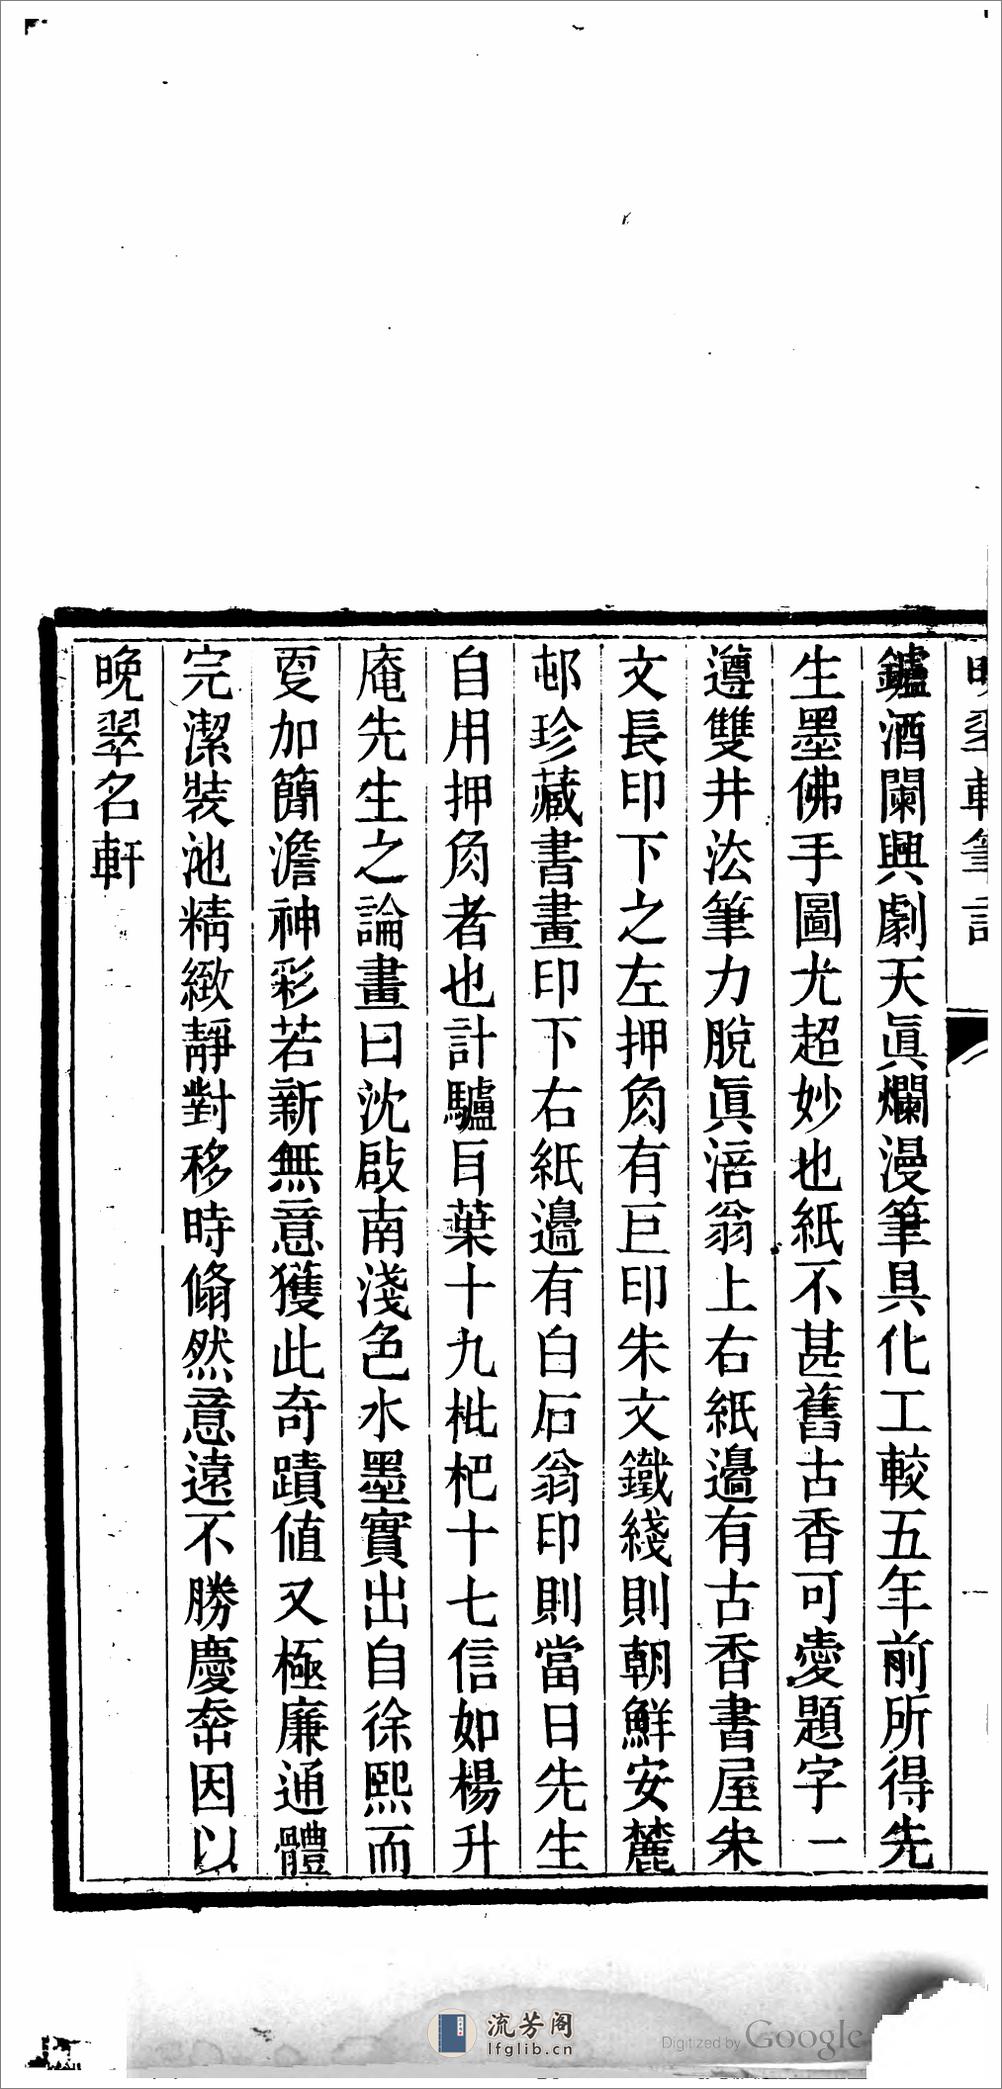 晚翠軒筆記
鑪酒闌興劇天眞爛漫筆具化工較五年前所得先
生墨佛手圖尤超妙也紙不甚舊古香可愛題字一
遵雙井法筆力脫眞涪翁上右紙邊有古香書屋朱
文長印下之左押角有巨印朱文鐵綫則朝鮮安麓
邨珍藏書畫印下右紙邊有白石翁印則當日先生
自用押角者也計驢目葉十九枇杷十七信如楊升
庵先生之論畫曰沈啟南淺色水墨實出自徐熙而
更加簡澹神彩若新無意獲此奇蹟値又極廉通體
完潔裝池精緻靜對移時翛然意遠不勝慶幸因以
晚翠名軒
流芳阁
lfglib.cn
Digitized by Google